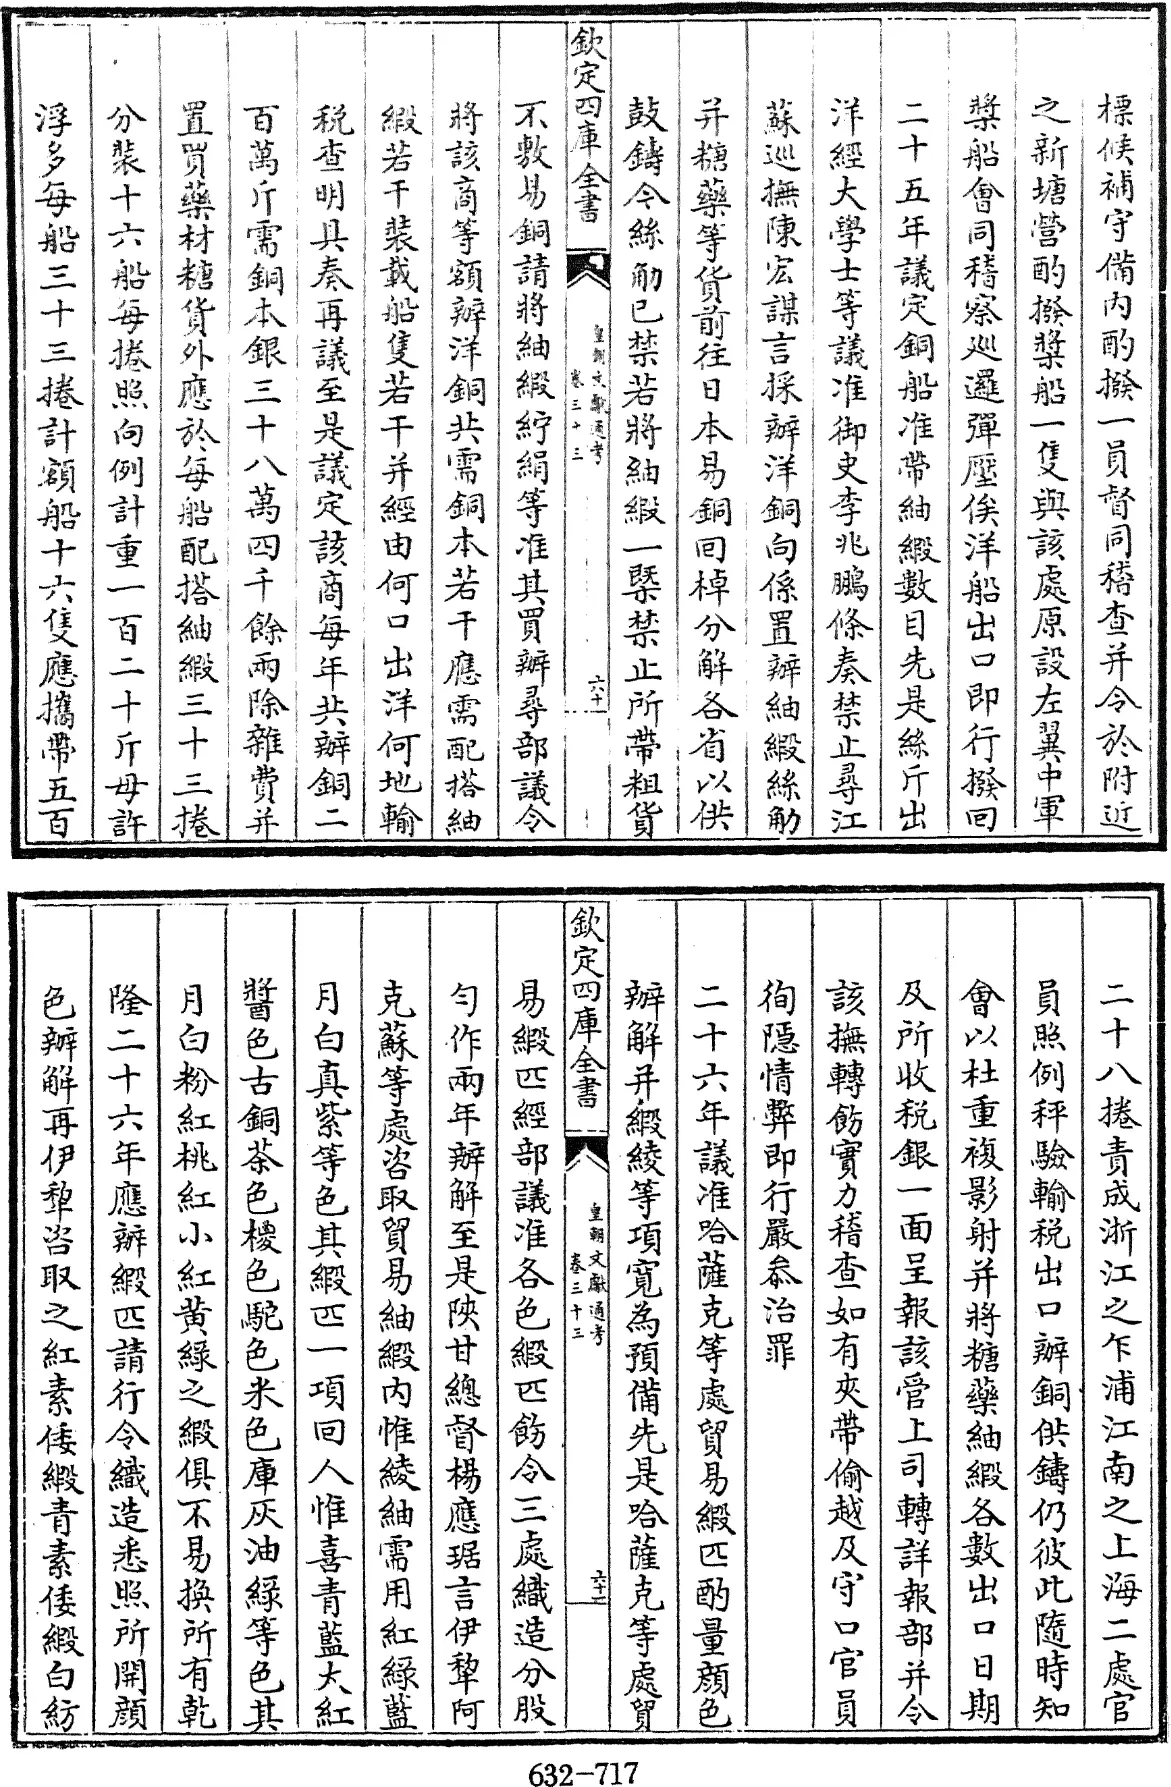 標候補守備内酌撥一員督同稽查并令於附近
之新塘營酌撥槳船一隻與該處原設左翼中軍
槳船會同稽察巡邏彈壓俟洋船出口即行撥回
二十五年議定銅船准帶紬緞數目先是絲斤出
洋經大學士等議准御史李兆鵬條奏禁止尋江
蘇巡撫陳宏謀言採辦洋銅向係置辦紬緞絲觔
并糖藥等貨前往日本易銅回棹分解各省以供
鼓鑄今絲觔已禁若將紬緞一槩禁止所帶粗貨
欽定四庫全書
皇朝文獻通考
卷三十三
六十
不敷易銅請將紬緞紵絹等准其買辦尋部議令
將該商等額辦洋銅共需銅本若干應需配搭紬
緞若干裝載船隻若干并經由何口出洋何地輸
稅查明具奏再議至是議定該商每年共辦銅二
百萬斤需銅本銀三十八萬四千餘兩除雜費并
置買藥材糖貨外應於每船配搭紬緞三十三捲
分裝十六船每捲照向例計重一百二十斤毋許
浮多每船三十三捲計額船十六隻應攜帶五百
二十八捲責成浙江之乍浦江南之上海二處官
員照例秤驗輸稅出口辦銅供鑄仍彼此隨時知
會以杜重複影射并將糖藥紬緞各數出口日期
及所收稅銀一面呈報該管上司轉詳報部并令
該撫轉飭實力稽查如有夾帶偷越及守口官員
徇隱情弊即行嚴叅治罪
二十六年議准哈薩克等處貿易緞匹酌量顏色
辦解并緞綾等項寬為預備先是哈薩克等處貿
欽定四庫全書
皇朝文獻通考
卷三十三
六十一
易緞匹經部議准各色緞匹飭令三處織造分股
勻作兩年辦解至是陝甘總督楊應琚言伊犂阿
克蘇等處咨取貿易紬緞內惟綾紬需用紅綠藍
月白真紫等色其緞匹一項回人惟喜青藍大紅
醬色古銅茶色椶色駝色米色庫灰油綠等色其
月白粉紅桃紅小紅黃綠之緞俱不易換所有乾
隆二十六年應辦緞匹請行令織造悉照所開顏
色辦解再伊犂咨取之紅素倭緞青素倭緞白紡
632-717